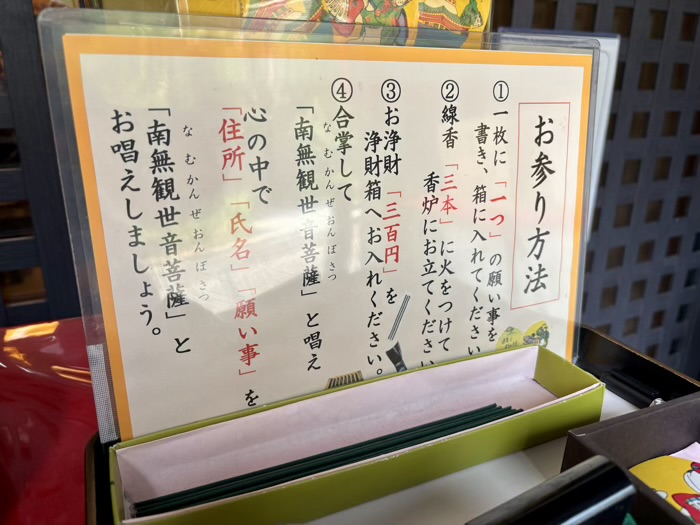 お参り方法
①一枚に「一つ」の願い事を
書き、箱に入れてください
②線香「三本」に火をつけて
香炉にお立てください
③お浄財「三百円」を
浄財箱へお入れください。
④合掌して
なむかんぜおんぼさつ
「南無観世音菩薩」と唱え
心の中で
「住所」「氏名」「願い事」を
なむかんぜおんぼさつ
「南無観世音菩薩」と
お唱えしましょう。